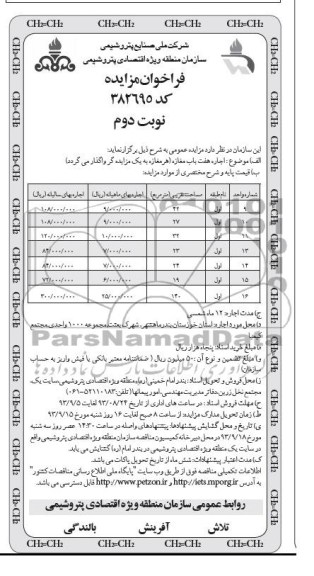 CH2=CH2 CH2=CH2 CH2=CH2 CH2=CH2
شرکت ملی صنایع پتروشیمی
سازمان منطقه ویژه اقتصادی پتروشیمی
فراخوان مزایده
کد ۳۸۲۶۹۵
نوبت دوم
این سازمان در نظر دارد مزایده عمومی به شرح ذیل برگزار نماید:
الف) موضوع : اجاره هفت باب مغازه (هر مغازه به یک مزایده گر واگذار می گردد)
ب) قیمت پایه و شرح مختصری از موارد مزایده:
شماره واحد نام طبقه مساحت تقریبی (متر مربع) اجاره بهای ماهیانه (ریال) اجاره بهای سالیانه (ریال)
۹ اول ۲۲ ۹/۰۰۰/۰۰۰ ۱۰۸/۰۰۰/۰۰۰
۱۰ اول ۲۷ ۹/۰۰۰/۰۰۰ ۱۰۸/۰۰۰/۰۰۰
۱۱ اول ۳۲ ۱۰/۰۰۰/۰۰۰ ۱۲۰/۰۰۰/۰۰۰
۱۳ اول ۲۳ ۷/۰۰۰/۰۰۰ ۸۴/۰۰۰/۰۰۰
۱۴ اول ۲۴ ۷/۰۰۰/۰۰۰ ۸۴/۰۰۰/۰۰۰
۱۵ اول ۱۹ ۶/۰۰۰/۰۰۰ ۷۲/۰۰۰/۰۰۰
۱۶ اول ۱۴۰ ۲۵/۰۰۰/۰۰۰ ۳۰۰/۰۰۰/۰۰۰
ج) مدت اجاره: ۱۲ ماه شمسی
د) محل مورد اجاره: استان خوزستان بندر ماهشهر، شهرک بعثت مجموعه ۱۰۰۰ واحدی مجتمع
ه) مبلغ خرید اسناد: پنجاه هزار ریال
و) مبلغ تضمین و نوع آن: ۵۰ میلیون ریال ( ضمانتنامه معتبر بانکی یا فیش واریز به حساب
سازمان)
ز) محل فروش و تحویل اسناد: بندر امام خمینی (ره) منطقه ویژه اقتصادی پتروشیمی سایت یک،
مجتمع نخل زرین، دفاتر مدیریت مهندسی امور پیمانها (تلفن: ۵۲۱۱۰۱۸۳-۰۶۱)
ح) مهلت فروش اسناد : در ساعت های اداری از تاریخ ۹۳/۰۸/۲۴ لغایت ۹۳/۹/۵
ط) زمان تحویل مدارک مزایده: از ساعت ۸ صبح لغایت ۱۶ روز شنبه مورخ ۹۳/۹/۱۵
ی) تاریخ و محل گشایش پیشنهادها: پیشنهادهای واصله در ساعت ۱۴:۳۰ عصر روز سه شنبه
مورخ ۹۳/۹/۱۸ در محل دبیرخانه کمیسیون مناقصه سازمان منطقه ویژه اقتصادی پتروشیمی واقع
در سایت یک منطقه ویژه اقتصادی پتروشیمی در بندر امام (ره) گشایش می یابد.
ک) مدت اعتبار پیشنهادات: شش ماه از تاریخ تحویل پاکات می باشد.
اطلاعات تکمیلی مناقصه فوق از طریق وب سایت "پایگاه ملی اطلاع رسانی مناقصات کشور"
به آدرس http://iets.mporg.ir و http://www.petzon.ir قابل دسترسی می باشد.
روابط عمومی سازمان منطقه ویژه اقتصادی پتروشیمی
تلاش آفرینش بالندگی
CH2=CH2 CH2=CH2 CH2=CH2 CH2=CH2